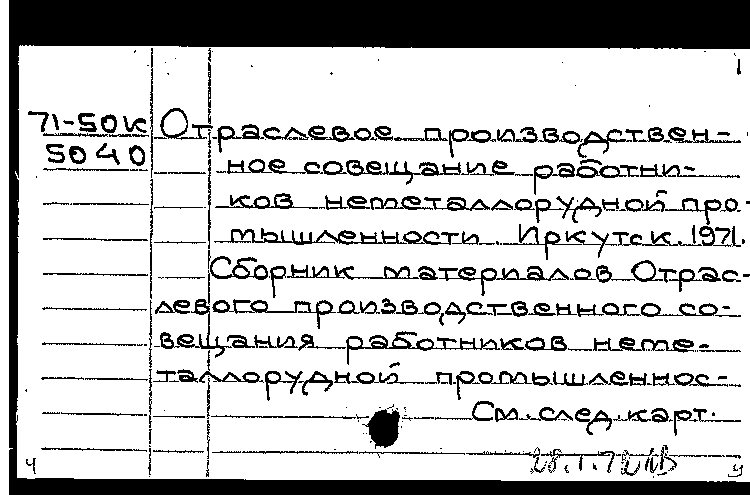 1
71-50к Отраслевое производствен-
5040 ное совещание работни-
ков неметаллорудной про-
мышленности. Иркутск. 1971.
Сборник материалов Отрас-
левого производственного со-
вещания работников неме-
таллорудной промышленнос-
См. след. карт.
28.1.72
ч